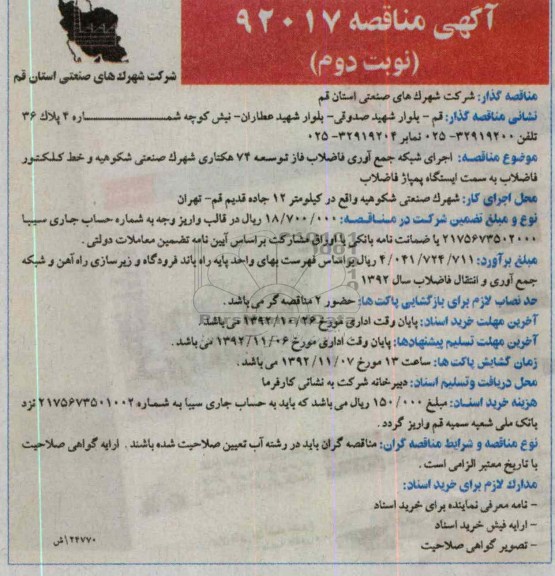 آگهی مناقصه ۹۲۰۱۷
(نوبت دوم)
شرکت شهرک های صنعتی استان قم
مناقصه گذار: شرکت شهرک های صنعتی استان قم
نشانی مناقصه گذار: قم - بلوار شهید صدوقی- بلوار شهید عطاران- نبش کوچه شمـــــاره ۴ پلاک ۳۶
تلفن ۳۲۹۱۹۲۰۰- ۰۲۵ نمابر ۳۲۹۱۹۲۰۴- ۰۲۵
موضوع مناقصـه: اجرای شبکه جمع آوری فاضلاب فاز توسعه ۷۴ هکتاری شهرک صنعتی شکوهیه و خط کـلکـتـور
فاضلاب به سمت ایستگاه پمپاژ فاضلاب
محل اجرای کار: شهرک صنعتی شکوهیه واقع در کیلومتر ۱۲ جاده قدیم قم- تهران
نوع و مبلغ تضمین شرکت در مـنـاقـصـه: ۱۸/۷۰۰/۰۰۰ ریال در قالب واریز وجه به شماره حساب جـاری سـیـبـا
۲۱۷۵۶۷۳۵۰۲۰۰۰ یا ضمانت نامه بانکی یا اوراق مشارکت بر اساس آیین نامه تضمین معاملات دولتی .
مبلغ برآورد: ۴/۰۴۱/۷۲۴/۷۱۱ ریال براساس فهرست بهای واحد پایه راه باند فرودگاه و زیرسازی راه آهن و شبکه
جمع آوری و انتقال فاضلاب سال ۱۳۹۲
حد نصاب لازم برای بازگشایی پاکت ها: حضور ۲ مناقصه گر می باشد .
آخرین مهلت خرید اسناد: پایان وقت اداری مورخ ۱۳۹۲/۱۰/۲۶ می باشد.
آخرین مهلت تسلیم پیشنهادها: پایان وقت اداری مورخ ۱۳۹۲/۱۱/۰۶ می باشد .
زمان گشایش پاکت ها: ساعت ۱۳ مورخ ۱۳۹۲/۱۱/۰۷ می باشد .
محل دریافت وتسلیم اسناد: دبیرخانه شرکت به نشانی کارفرما
هزینه خرید اسنــاد: مبلغ ۱۵۰/۰۰۰ ریال می باشد که باید به حساب جاری سیبا به شماره ۲۱۷۵۶۷۳۵۰۱۰۰۲ نزد
بانک ملی شعبه سمیه قم واریز گردد .
نوع مناقصه و شرایط مناقصه گران: مناقصه گران باید در رشته آب تعیین صلاحیت شده باشند . ارایه گواهی صلاحیت
با تاریخ معتبر الزامی است .
مدارک لازم برای خرید اسناد:
- نامه معرفی نماینده برای خرید اسناد
- ارایه فیش خرید اسناد
- تصویر گواهی صلاحیت
۲۴۷۷۰/ش